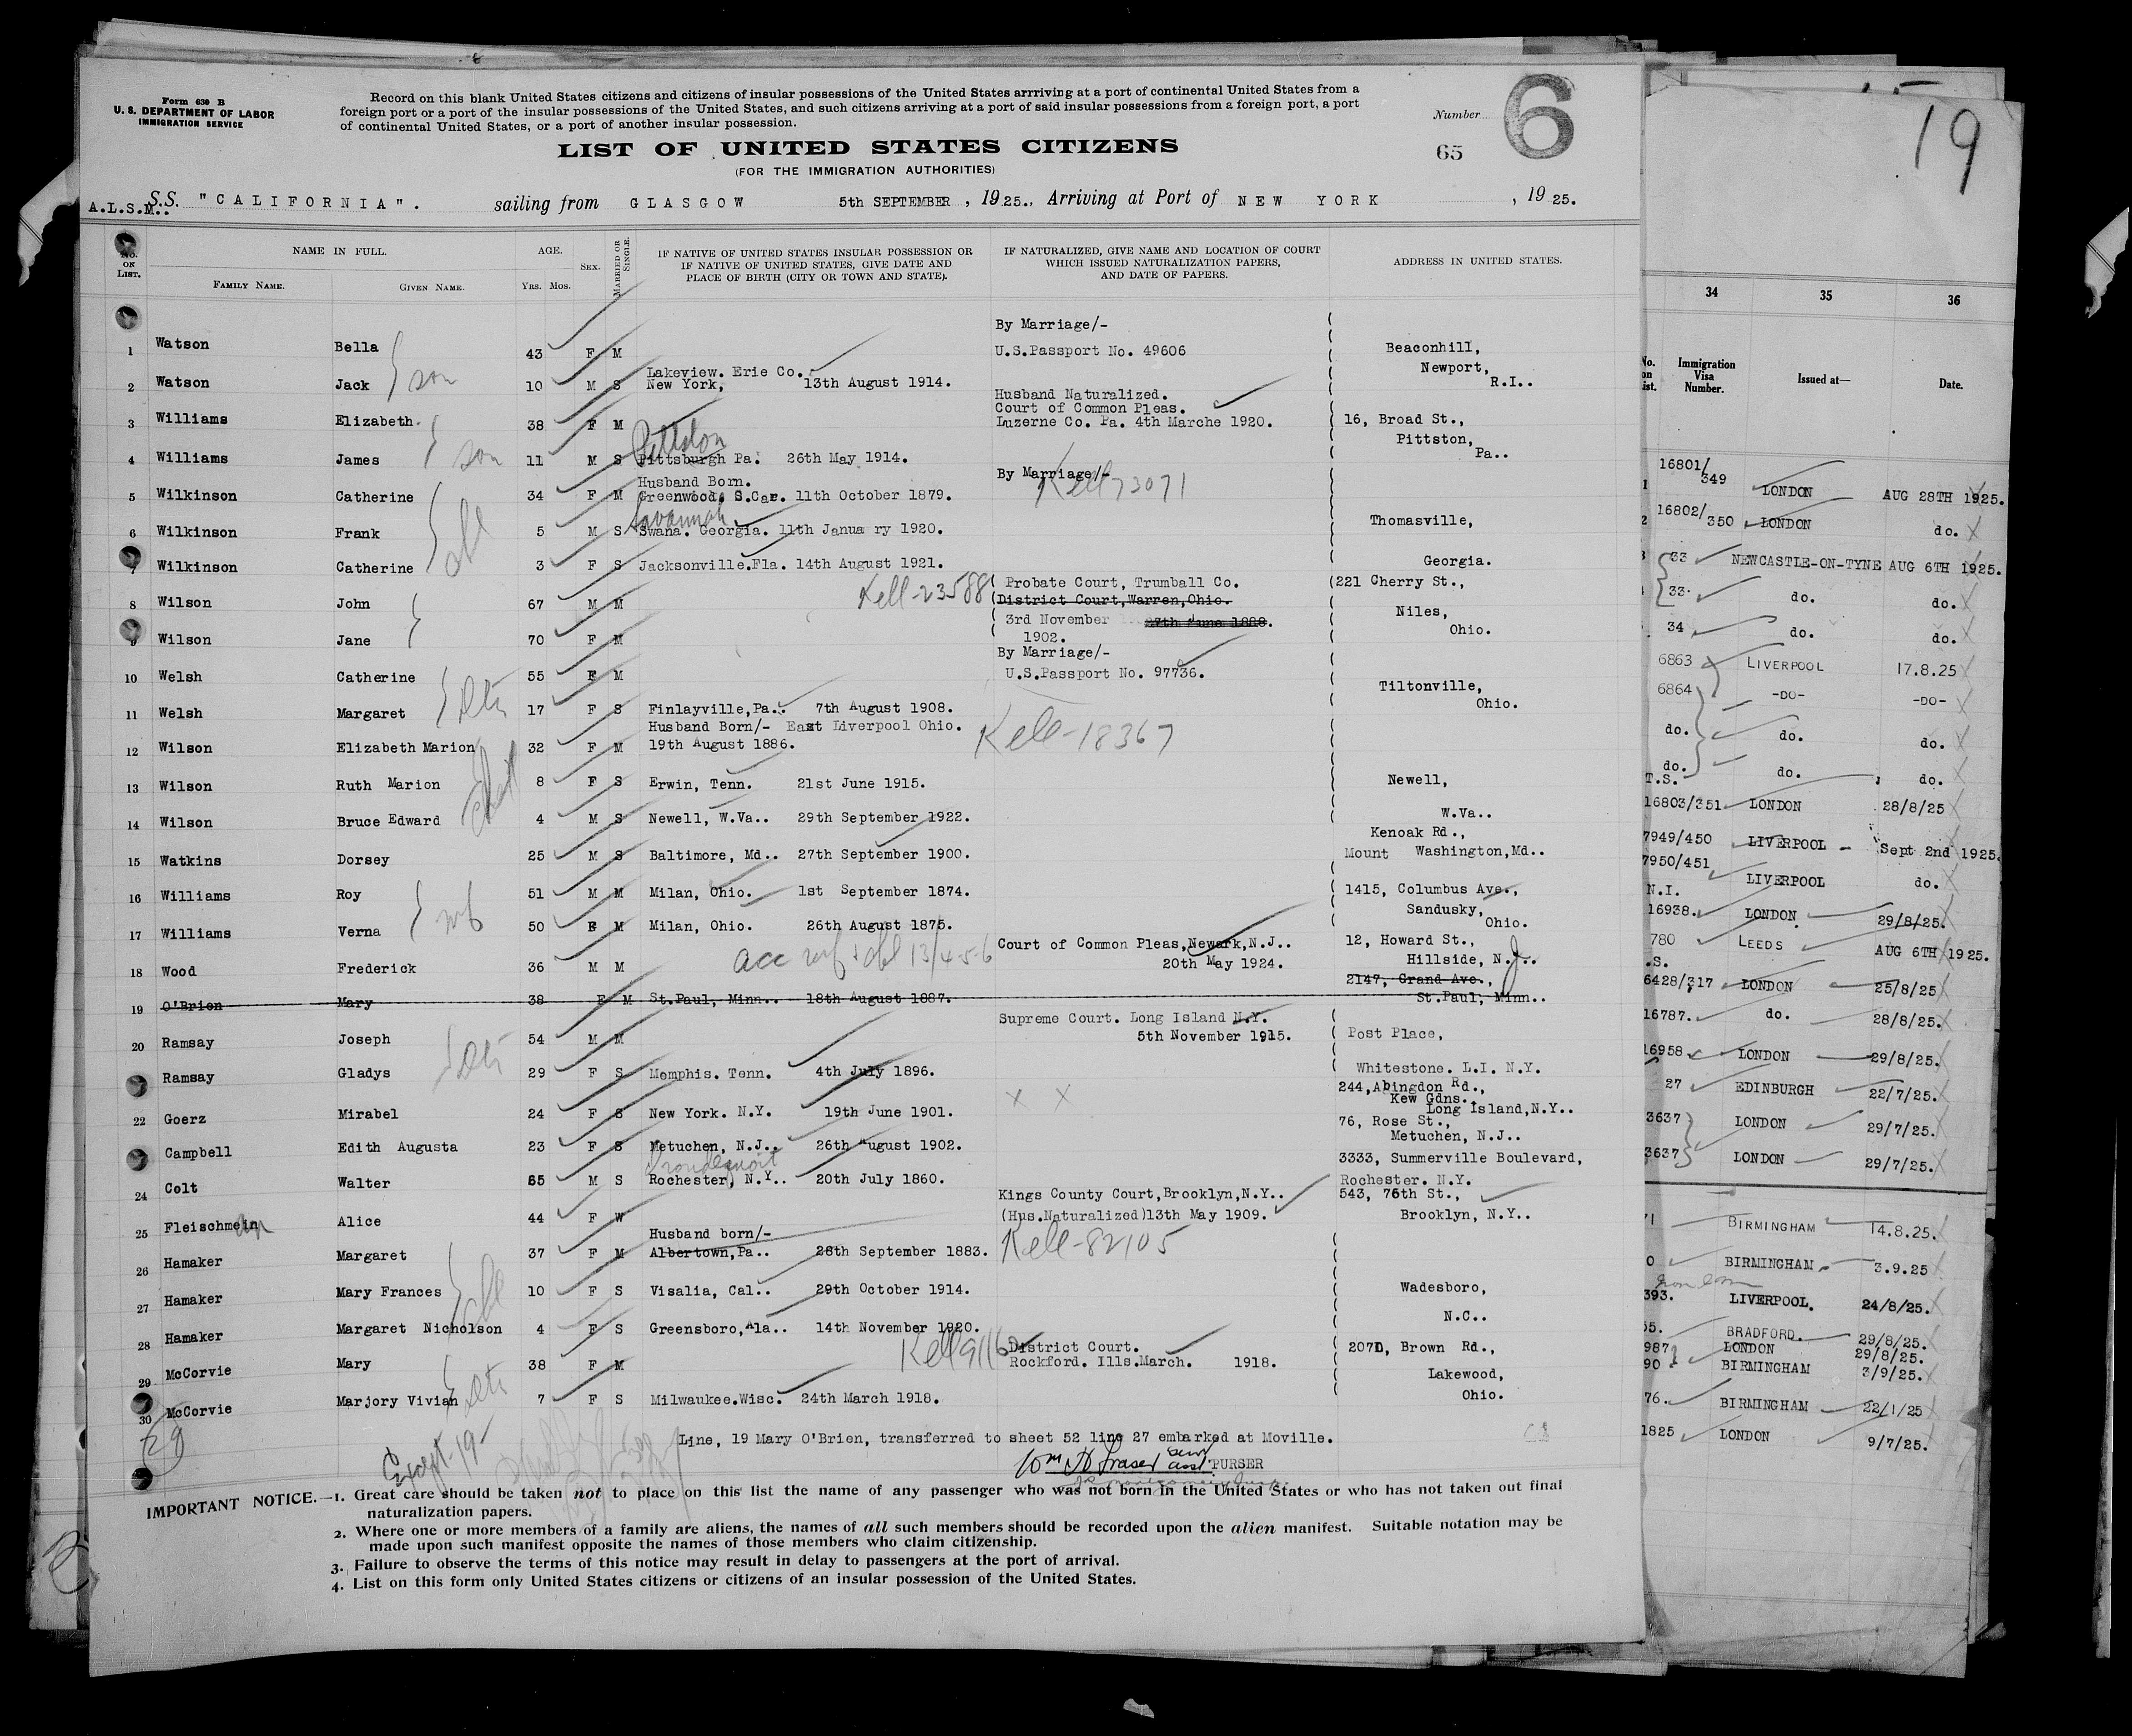 Form 630 B
U. S. DEPARTMENT OF LABOR
IMMIGRATION SERVICE
Record on this blank United States citizens and citizens of insular possessions of the United States arrriving at a port of continental United States from a
foreign port or a port of the insular possessions of the United States, and such citizens arriving at a port of said insular possessions from a foreign port, a port
of continental United States, or a port of another insular possession.
Number
65
6
LIST OF UNITED STATES CITIZENS
(FOR THE IMMIGRATION AUTHORITIES)
A.L.S.M.. S.S. "CALIFORNIA". sailing from GLASGOW 5th SEPTEMBER, 1925., Arriving at Port of NEW YORK, 1925.
No. ON LIST.
NAME IN FULL.
FAMILY NAME.
GIVEN NAME.
AGE.
YRS. MOS.
SEX.
MARRIED OR SINGLE.
IF NATIVE OF UNITED STATES INSULAR POSSESSION OR
IF NATIVE OF UNITED STATES, GIVE DATE AND
PLACE OF BIRTH (CITY OR TOWN AND STATE).
IF NATURALIZED, GIVE NAME AND LOCATION OF COURT
WHICH ISSUED NATURALIZATION PAPERS,
AND DATE OF PAPERS.
ADDRESS IN UNITED STATES.
By Marriage/-
1 Watson Bella 43 F M U.S.Passport No. 49606 Beaconhill,
son
Lakeview. Erie Co. Newport,
2 Watson Jack 10 M S New York, 13th August 1914. R.I..
Husband Naturalized.
Court of Common Pleas.
3 Williams Elizabeth. 38 F M Luzerne Co. Pa. 4th Marche 1920. 16, Broad St.,
Pittston Pittston,
4 Williams James son 11 M S Pittsburgh Pa. 26th May 1914. Pa..
Husband Born. By Marriage/-
5 Wilkinson Catherine 34 F M Greenwood. S.Car. 11th October 1879. Kell 73071
Savannah
6 Wilkinson Frank 5 M S Swana. Georgia. 11th Janua ry 1920. Thomasville,
chl
7 Wilkinson Catherine 3 F S Jacksonville.Fla. 14th August 1921. Georgia.
Kell-23588 Probate Court, Trumball Co. (221 Cherry St.,
8 Wilson John 67 M M District Court,Warren,Ohio.
3rd November 27th June 1888. Niles,
9 Wilson Jane 70 F M 1902. Ohio.
By Marriage/-
10 Welsh Catherine 55 F M U.S.Passport No. 97736.
Tiltonville,
11 Welsh Margaret 17 F S Finlayville,Pa.. 7th August 1908. Ohio.
Husband Born/- East Liverpool Ohio.
12 Wilson Elizabeth Marion 32 F M 19th August 1886. Kell-18367
13 Wilson Ruth Marion 8 F S Erwin, Tenn. 21st June 1915. Newell,
14 Wilson Bruce Edward 4 M S Newell, W.Va.. 29th September 1922. W.Va..
Kenoak Rd.,
15 Watkins Dorsey 25 M S Baltimore, Md.. 27th September 1900. Mount Washington,Md..
16 Williams Roy 51 M M Milan, Ohio. 1st September 1874. 1415, Columbus Ave.,
wf Sandusky,
17 Williams Verna 50 F M Milan, Ohio. 26th August 1875. Ohio.
acc wf + chl 13/4-5-6 Court of Common Pleas,Newark,N.J.. 12, Howard St.,
18 Wood Frederick 36 M M 20th May 1924. Hillside, N.J..
2147, Grand Ave.,
19 O'Brien Mary 38 F M St.Paul, Minn.. 18th August 1887. St.Paul, Minn..
Supreme Court. Long Island N.Y.
20 Ramsay Joseph 54 M M 5th November 1915. Post Place,
Ramsay Gladys 29 F S Memphis. Tenn. 4th July 1896. Whitestone. L.I. N.Y.
244,Abingdon Rd.,
Kew Gdns.,
22 Goerz Mirabel 24 F S New York. N.Y. 19th June 1901. X X Long Island,N.Y..
76, Rose St.,
Campbell Edith Augusta 23 F S Metuchen, N.J.. 26th August 1902. Metuchen, N.J..
Irondequoit 3333, Summerville Boulevard,
24 Colt Walter 65 M S Rochester, N.Y.. 20th July 1860. Rochester. N.Y.
Kings County Court,Brooklyn,N.Y.. 543, 76th St.,
25 Fleischmein an Alice 44 F W (Hus.Naturalized)13th May 1909. Brooklyn, N.Y..
Husband born/-
26 Hamaker Margaret 37 F M Albertown,Pa.. 28th September 1883. Kell-82105
27 Hamaker Mary Frances 10 F S Visalia, Cal.. 29th October 1914. Wadesboro,
chl
28 Hamaker Margaret Nicholson 4 F S Greensboro,Ala.. 14th November 1920. N.C..
Kell 9116 District Court.
29 McCorvie Mary 38 F M Rockford. Ills.March. 1918. 207D, Brown Rd.,
Lakewood,
30 McCorvie Marjory Vivian 7 F S Milwaukee.Wisc. 24th March 1918. Ohio.
29
Except-19-
Line, 19 Mary O'Brien, transferred to sheet 52 line 27 embarked at Moville.
Wm H Fraser asst. PURSER
IMPORTANT NOTICE.—1. Great care should be taken not to place on this list the name of any passenger who was not born in the United States or who has not taken out final
naturalization papers.
2. Where one or more members of a family are aliens, the names of all such members should be recorded upon the alien manifest. Suitable notation may be
made upon such manifest opposite the names of those members who claim citizenship.
3. Failure to observe the terms of this notice may result in delay to passengers at the port of arrival.
4. List on this form only United States citizens or citizens of an insular possession of the United States.
19
34 35 36
No. on List. Immigration Visa Number. Issued at— Date.
1 16801/349 LONDON AUG 28TH 1925.
2 16802/350 LONDON do.
33 NEWCASTLE-ON-TYNE AUG 6TH 1925.
33 do. do.
34 do. do.
6863 LIVERPOOL 17.8.25
6864 -DO- -DO-
do. do. do.
do. do. do.
T.S.
16803/351 LONDON 28/8/25
7949/450 LIVERPOOL - Sept 2nd 1925.
7950/451 LIVERPOOL do.
N.I.
16938. LONDON 29/8/25.
780 LEEDS AUG 6TH 1925.
.S.
6428/317 LONDON 25/8/25
16787. do. 28/8/25.
16958 LONDON 29/8/25.
27 EDINBURGH 22/7/25.
3637 LONDON 29/7/25.
3637 LONDON 29/7/25.
71 BIRMINGHAM 14.8.25.
0 BIRMINGHAM. 3.9.25
393. LIVERPOOL. 24/8/25.
55. BRADFORD. 29/8/25.
987 LONDON 29/8/25.
90 BIRMINGHAM 3/9/25.
76. BIRMINGHAM 22/1/25
1825 LONDON 9/7/25.